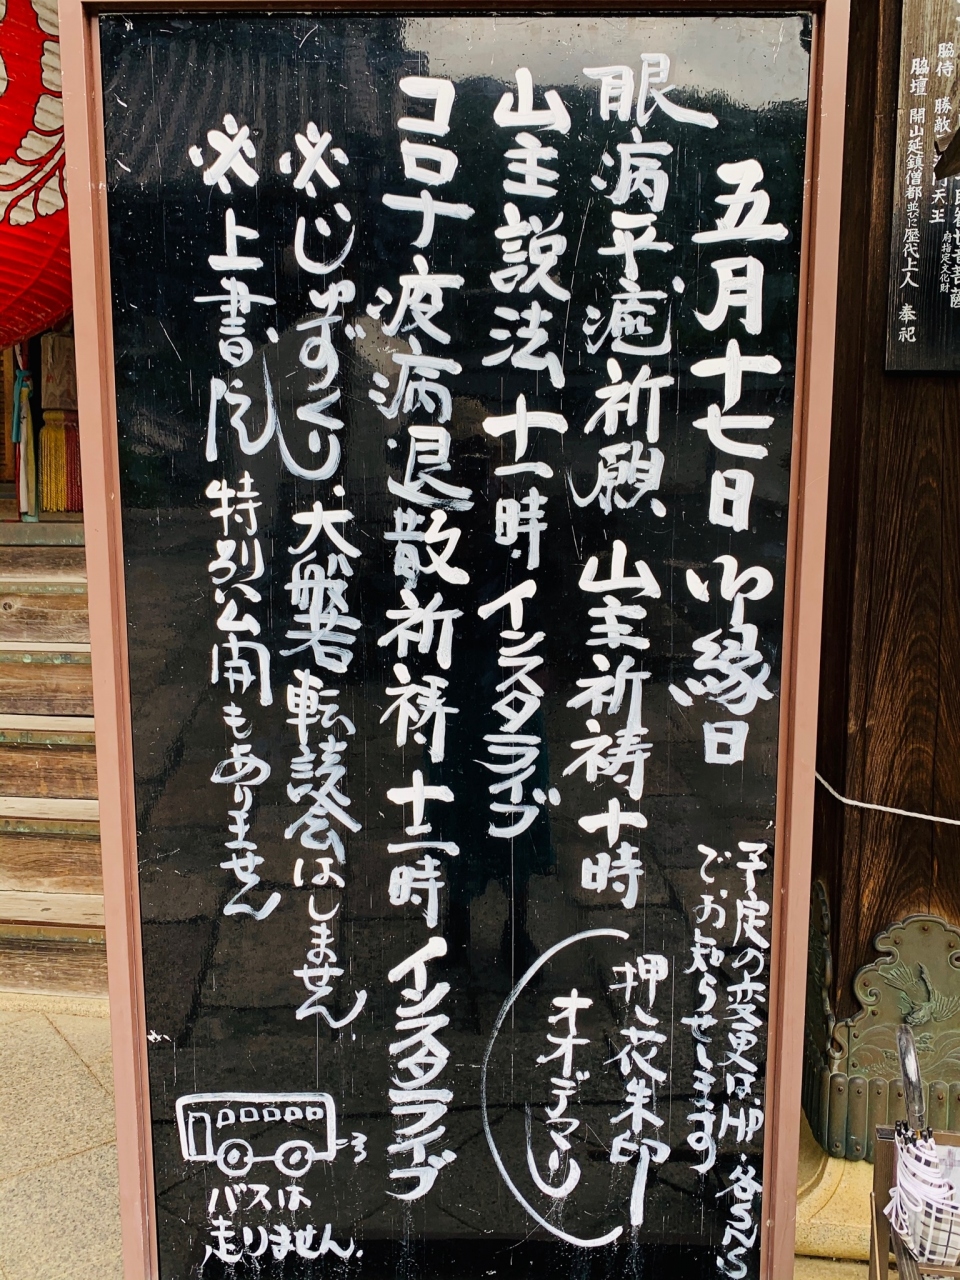 五月十七日 御縁日
予定の変更は、HP・各SNS
でお知らせします
眼病平癒祈願 山主祈祷 十時
押し花朱印
オオデマリ
山主説法 十一時 インスタライブ
コロナ疫病退散祈祷 十二時 インスタライブ
※じゅずくり、大般若転読会はしません
※上書院 特別公開もありません
バスは
走りません
脇侍 勝敵
脇壇 開山延鎮僧都 並に 歴代上人 奉祀
府指定文化財